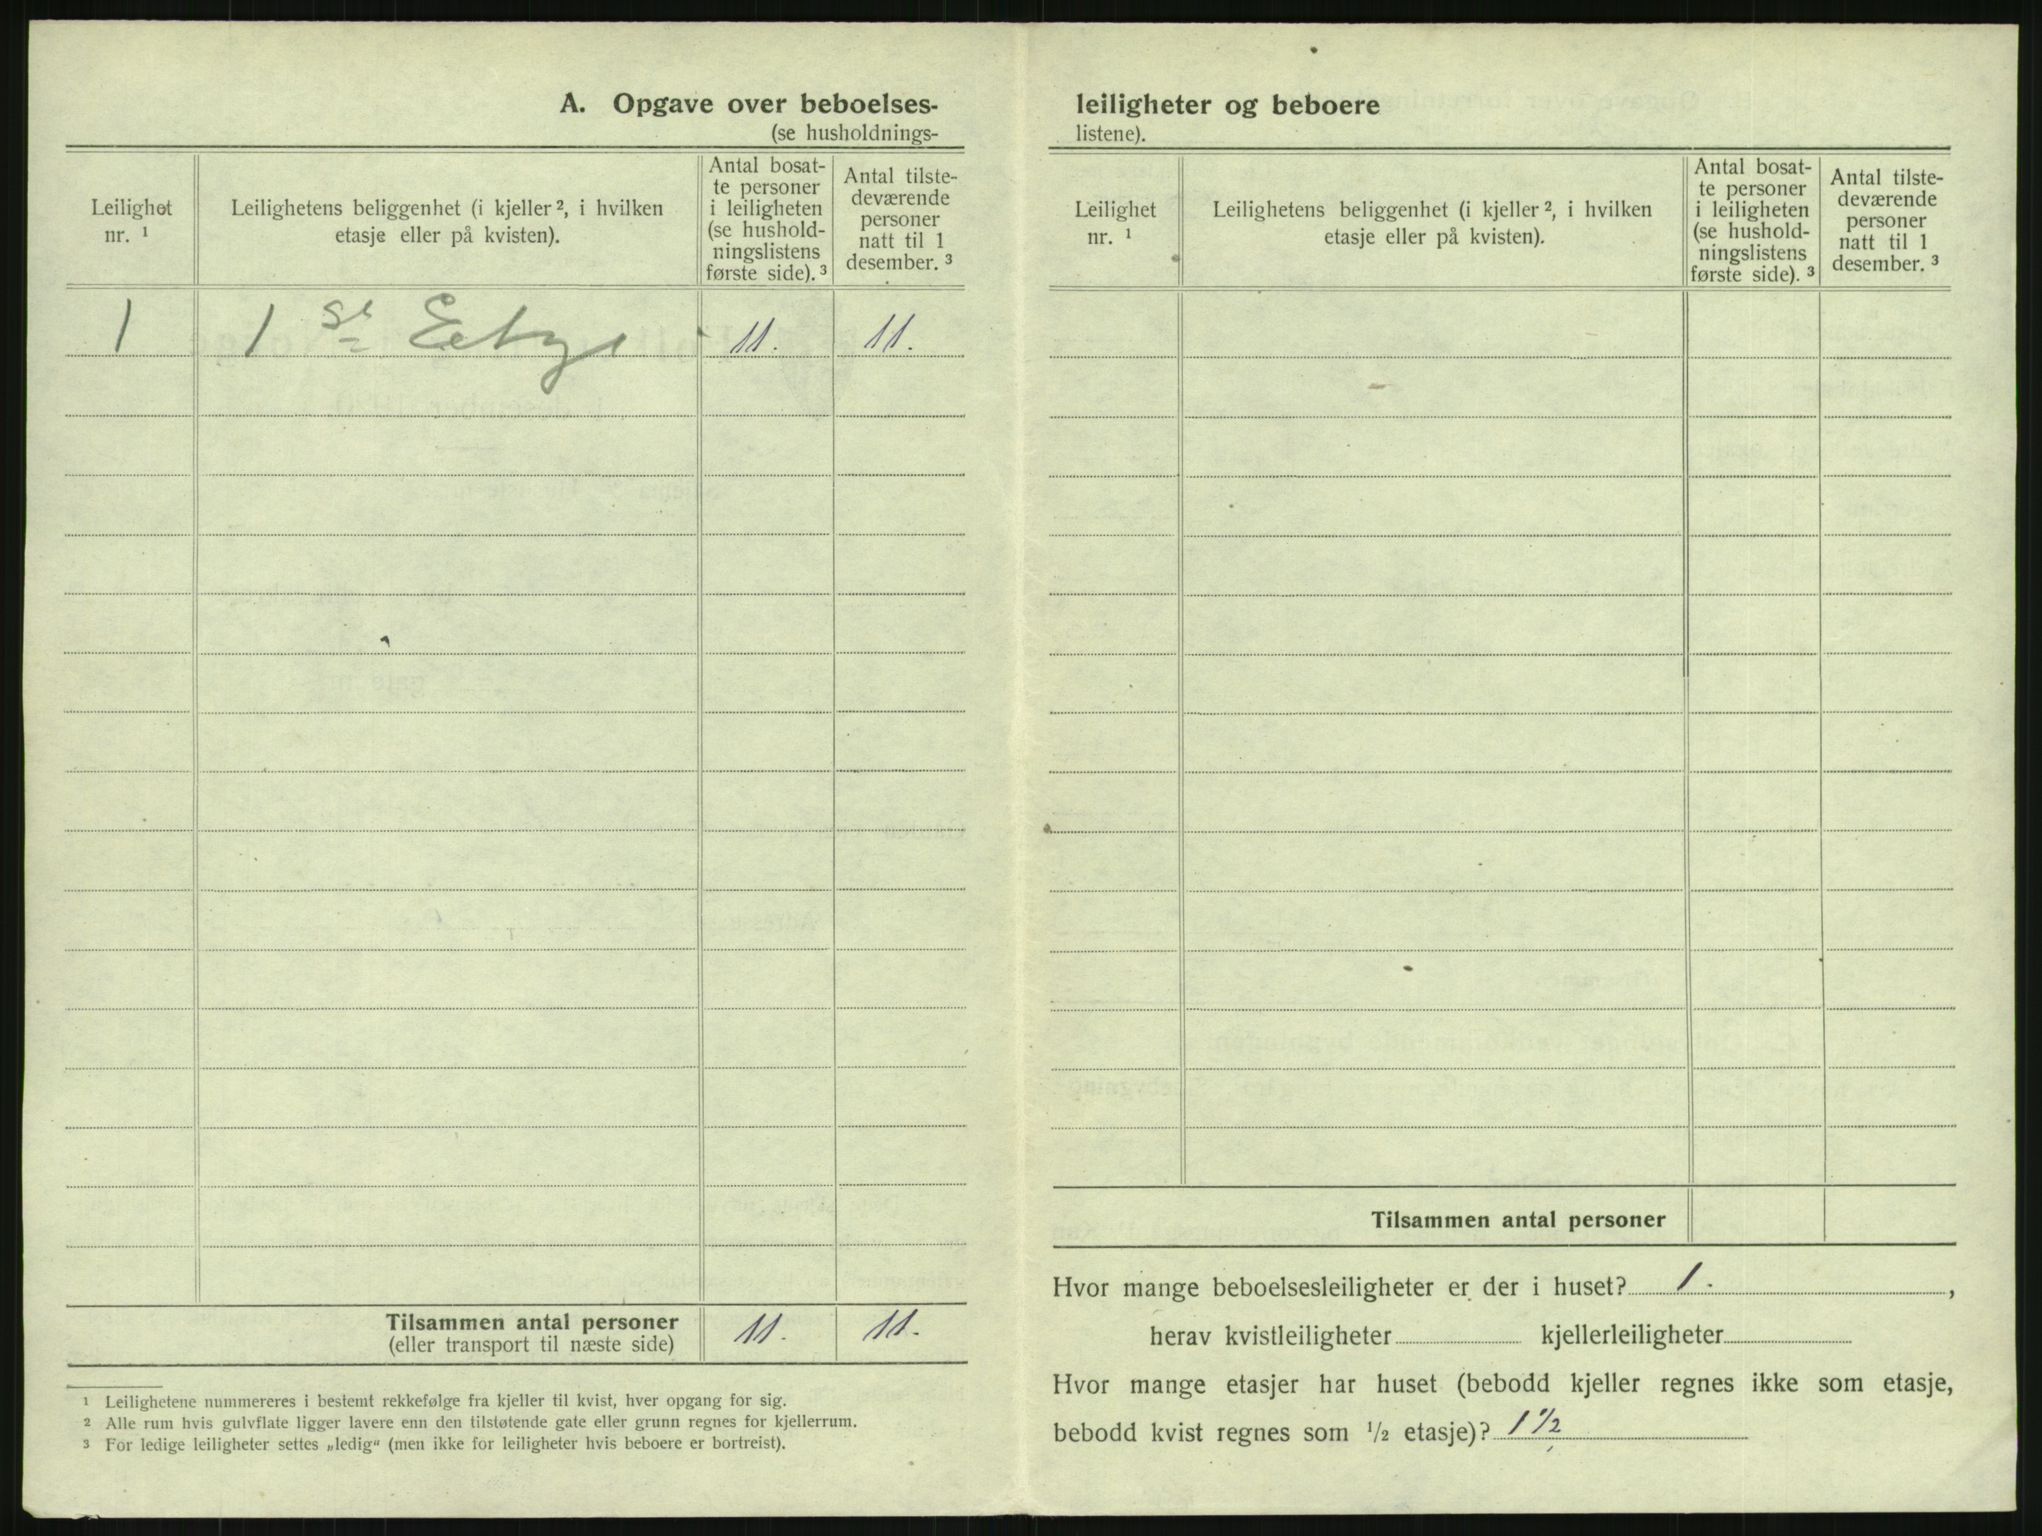 A. Opgave over beboelses-
(se husholdnings-
Leilighet
nr. ¹
Leilighetens beliggenhet (i kjeller ², i hvilken
etasje eller på kvisten).
Antal bosat-
te personer
i leiligheten
(se hushold-
ningslistens
første side). ³
Antal tilste-
deværende
personer
natt til 1
desember. ³
1 1 11. 11.
Tilsammen antal personer 11. 11.
(eller transport til næste side)
¹ Leilighetene nummereres i bestemt rekkefølge fra kjeller til kvist, hver opgang for sig.
² Alle rum hvis gulvflate ligger lavere enn den tilstøtende gate eller grunn regnes for kjellerrum.
³ For ledige leiligheter settes „ledig“ (men ikke for leiligheter hvis beboere er bortreist).
leiligheter og beboere
listene).
Leilighet
nr. ¹
Leilighetens beliggenhet (i kjeller ², i hvilken
etasje eller på kvisten).
Antal bosat-
te personer
i leiligheten
(se hushold-
ningslistens
første side). ³
Antal tilste-
deværende
personer
natt til 1
desember. ³
Tilsammen antal personer
Hvor mange beboelsesleiligheter er der i huset? 1. ,
herav kvistleiligheter kjellerleiligheter
Hvor mange etasjer har huset (bebodd kjeller regnes ikke som etasje,
bebodd kvist regnes som ½ etasje)? 1½